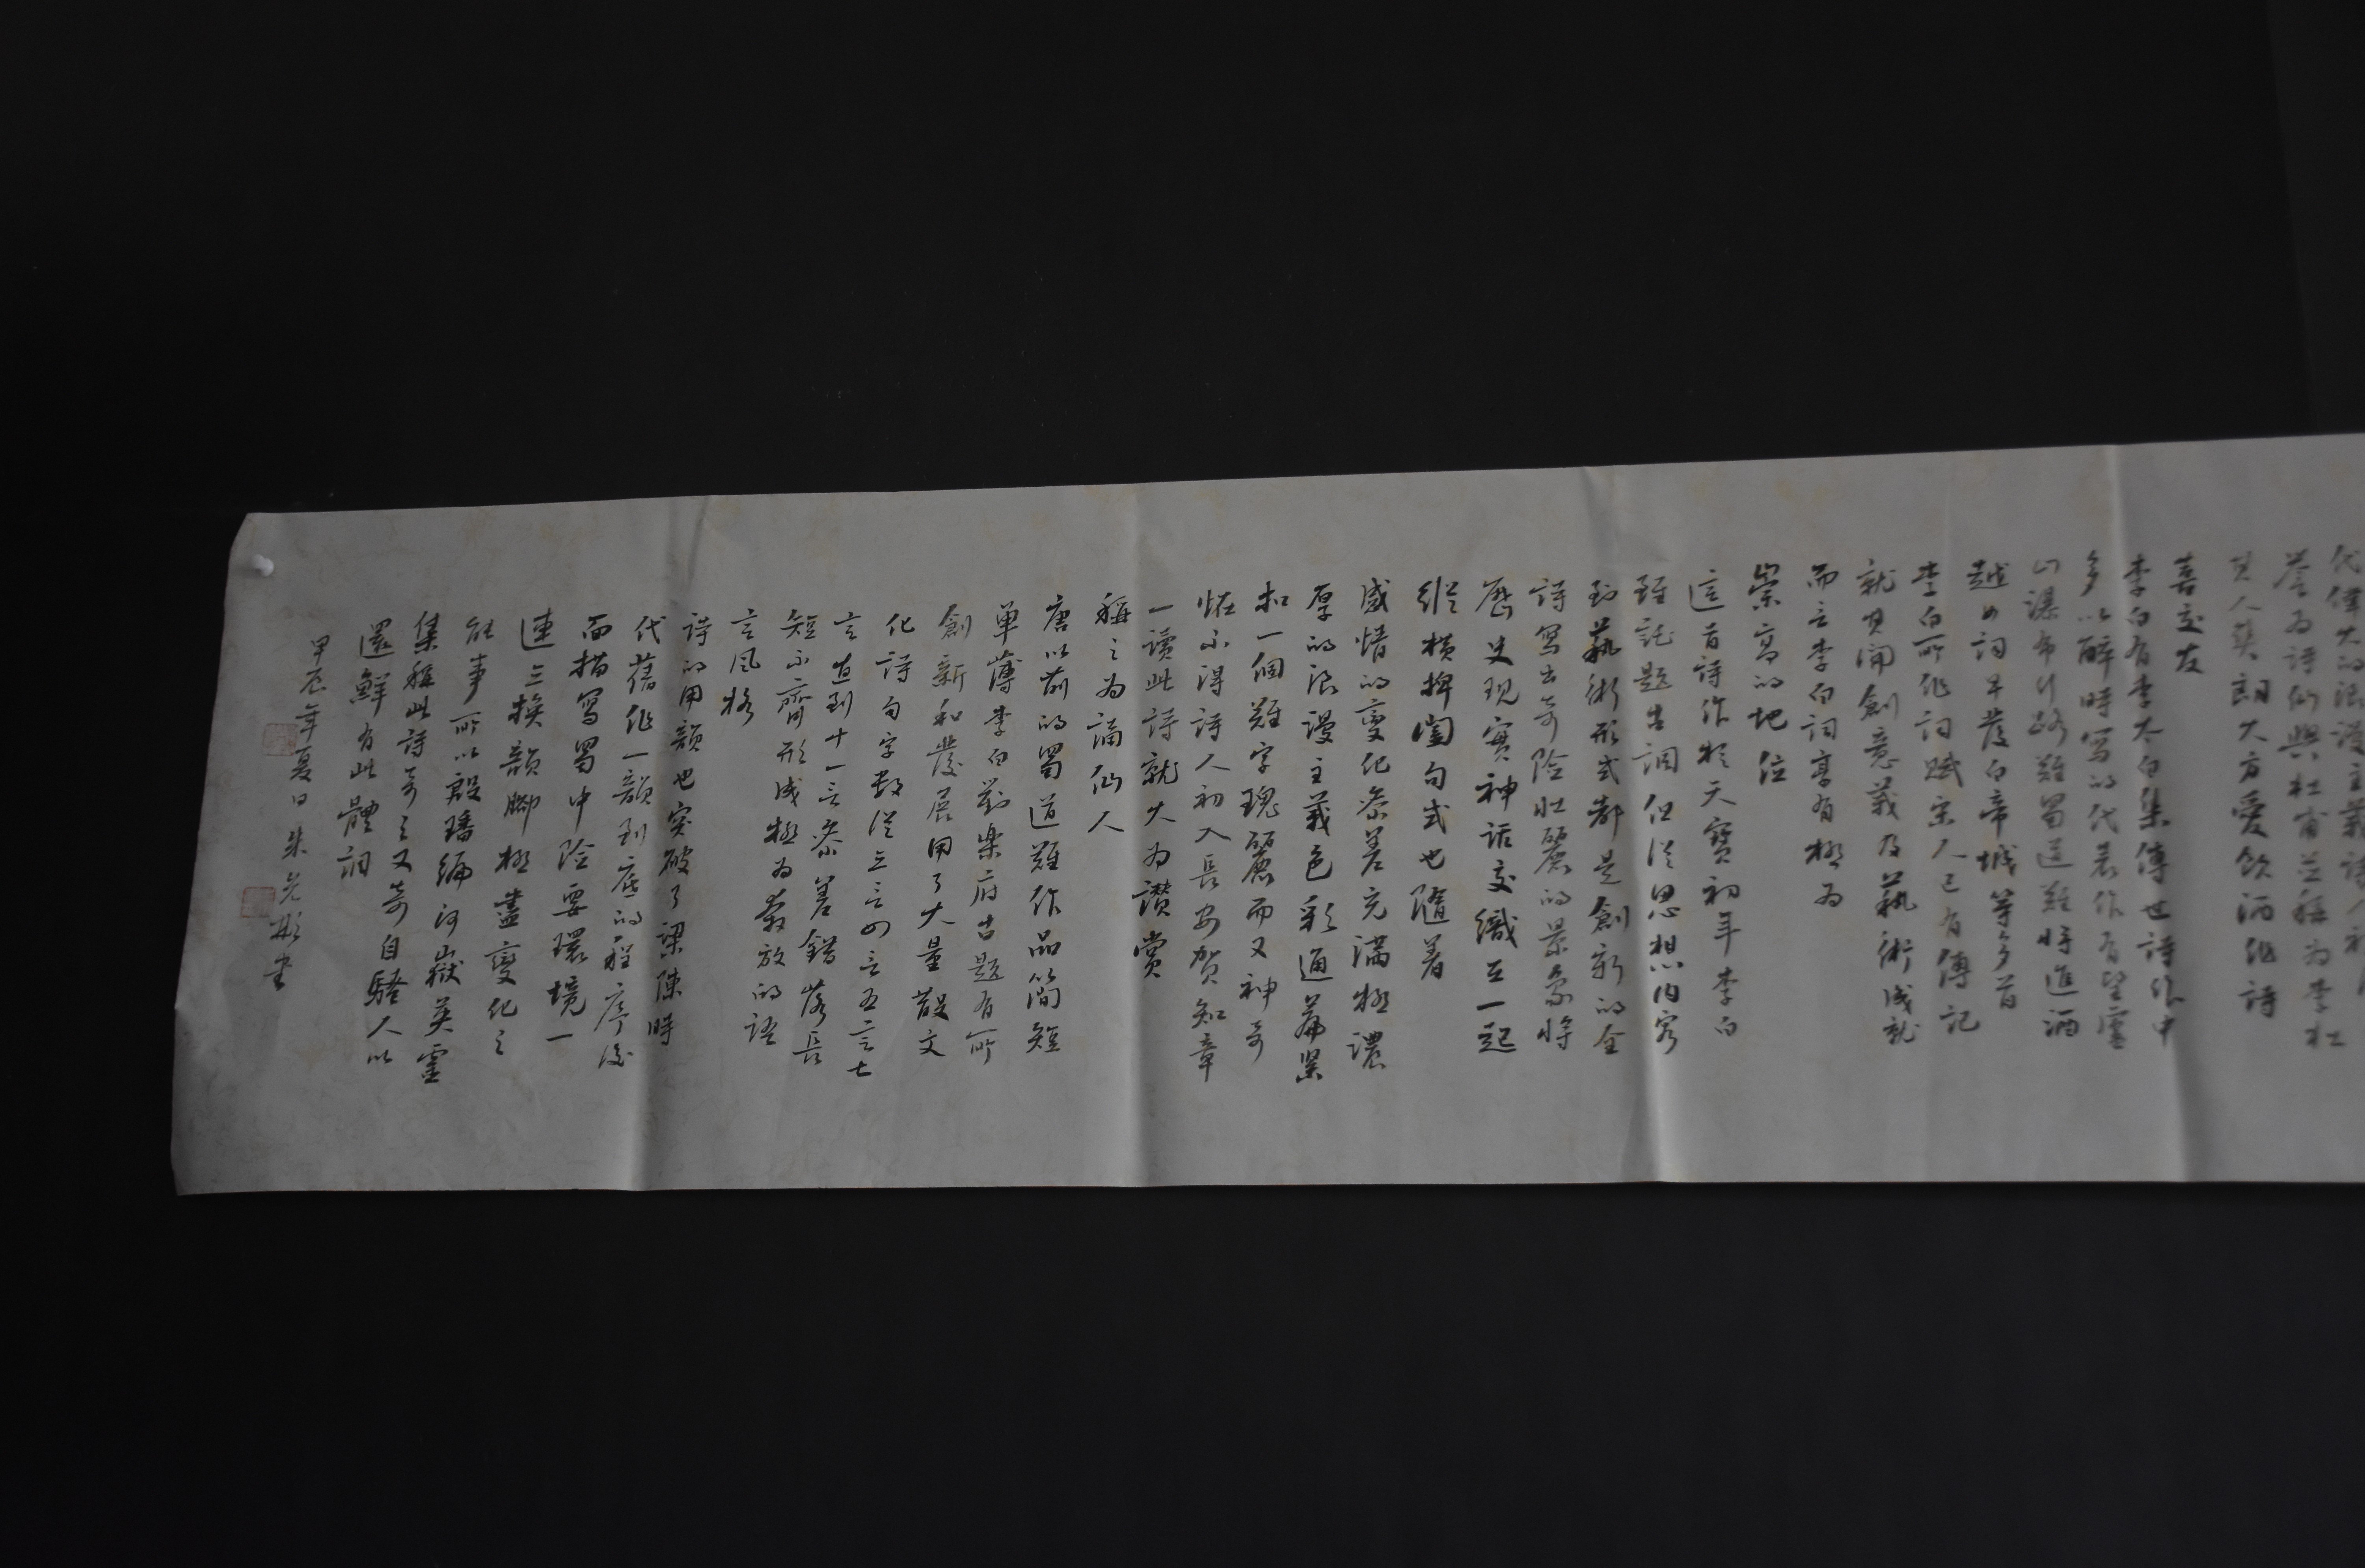 代偉大的浪漫主義詩人被
譽為詩仙與杜甫並稱為李杜
其人爽朗大方愛飲酒作詩
喜交友
李白有李太白集傳世詩作中
多以醉時寫的代表作有望廬
山瀑布行路難蜀道難將進酒
越女詞早發白帝城等多首
李白所作詞賦宋人已有傳記
就其開創意義及藝術成就
而言李白詞享有極為
崇高的地位
這首詩作於天寶初年李白
雖託題古調但從思想内容
到藝術形式都是創新的全
詩寫出奇险壯麗的景象将
歷史現實神話交織在一起
縱橫捭闔句式也隨着
感情的變化參差充滿極濃
厚的浪漫主義色彩通篇緊
扣一個難字瑰麗而又神奇
怪不得詩人初入長安贺知章
一讀此詩就大為讚賞
稱之為謫仙人
唐以前的蜀道難作品簡短
單薄李白對樂府古題有所
創新和發展用了大量散文
化詩句字數從三言四言五言七
言直到十一言參差錯落長
短不齊形成極為奔放的語
言风格
詩的用韻也突破了梁陳時
代舊作一韻到底的程序後
面描寫蜀中险要環境一
連三換韻腳極盡變化之
能事所以殷璠編河嶽英靈
集稱此詩奇之又奇自騷人以
還鮮有此體調
甲辰年夏日朱光彤書